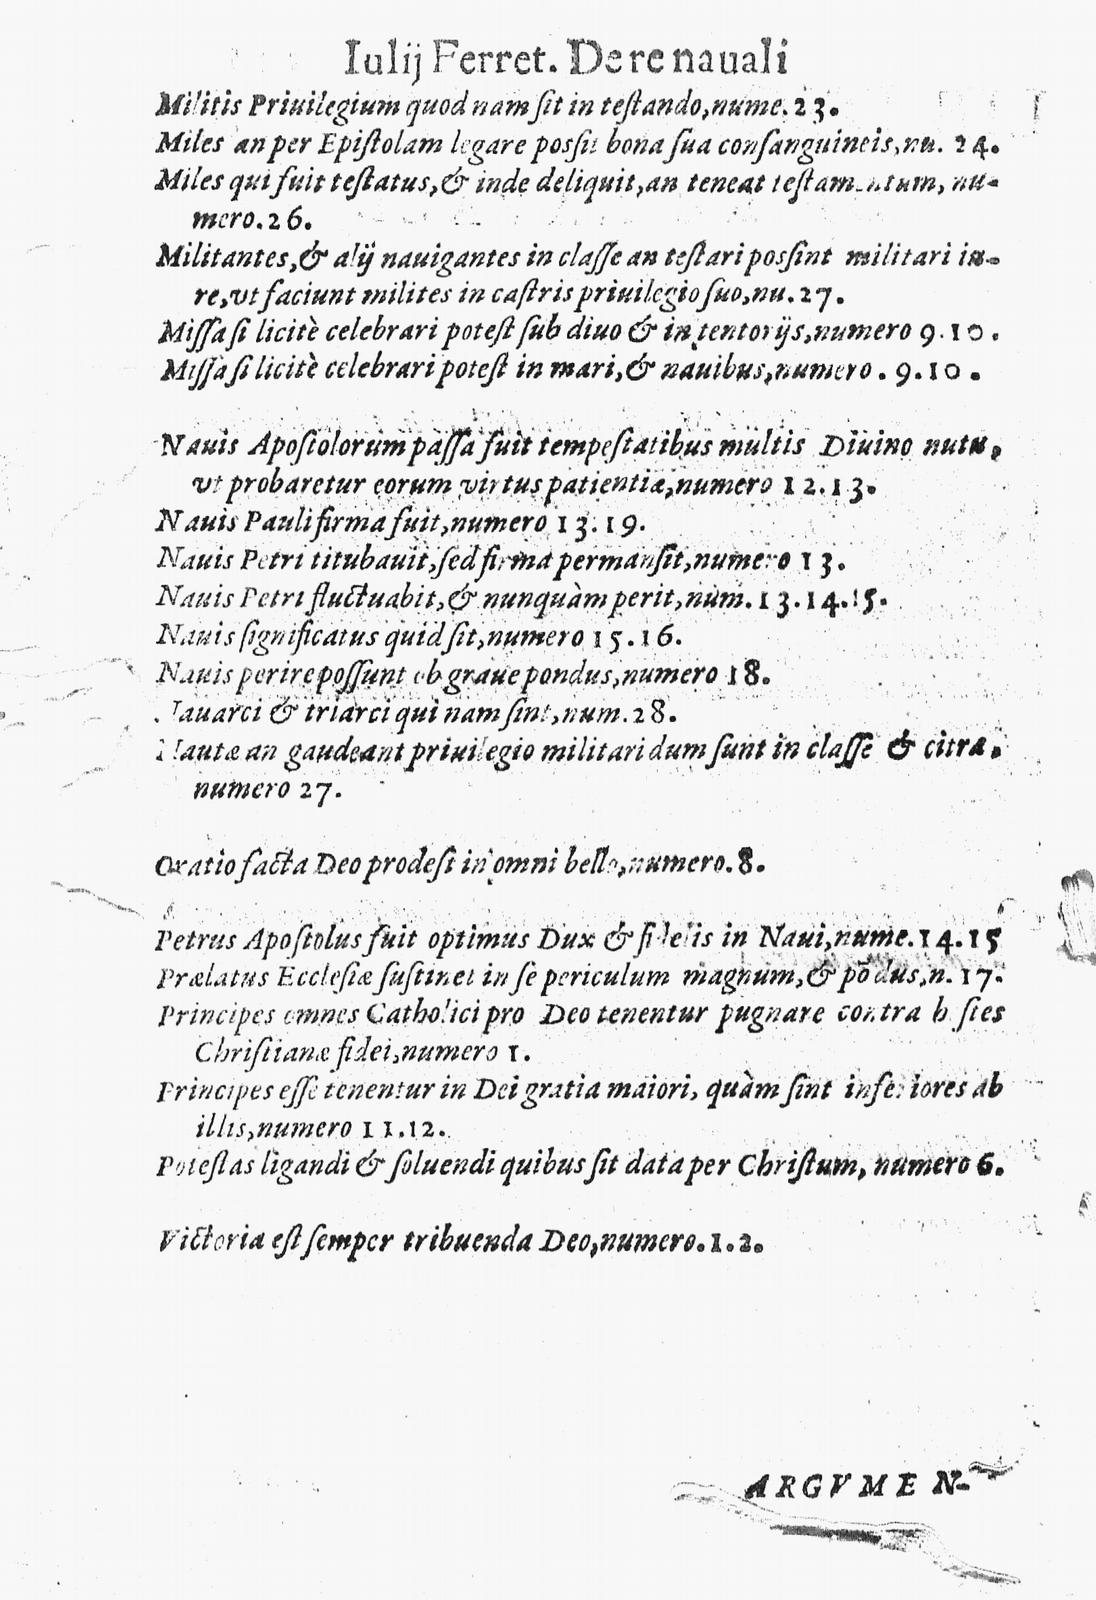 Iulij Ferret. De re nauali
Militis Priuilegium quod nam ſit in teſtando, nume. 23.
Miles an per Epiſtolam legare poſſit bona ſua conſanguineis, nu. 24.
Miles qui fuit teſtatus, & inde deliquit, an teneat teſtamentum, nu-
mero. 26.
Militantes, & alij nauigantes in claſſe an teſtari poſſint militari iu-
re, vt faciunt milites in caſtris priuilegio ſuo, nu. 27.
Miſſa ſi licitè celebrari poteſt ſub diuo & in tentorijs, numero 9.10.
Miſſa ſi licitè celebrari poteſt in mari, & nauibus, numero. 9.10.
Nauis Apoſtolorum paſſa fuit tempeſtatibus multis Diuino nutu,
vt probaretur eorum virtus patientiæ, numero 12.13.
Nauis Pauli firma fuit, numero 13.19.
Nauis Petri titubauit, ſed firma permanſit, numero 13.
Nauis Petri fluctuabit, & nunquàm perit, num. 13.14.15.
Nauis ſignificatus quid ſit, numero 15.16.
Nauis perire poſſunt ob graue pondus, numero 18.
Nauarci & triarci qui nam ſint, num. 28.
Nautæ an gaudeant priuilegio militari dum ſunt in claſſe & citra.
numero 27.
Oratio facta Deo prodeſt in omni bello, numero. 8.
Petrus Apoſtolus fuit optimus Dux & fidelis in Naui, nume. 14.15
Prælatus Eccleſiæ ſuſtinet in ſe periculum magnum, & põdus, n. 17.
Principes omnes Catholici pro Deo tenentur pugnare contra hoſtes
Chriſtianæ fidei, numero 1.
Principes eſſe tenentur in Dei gratia maiori, quàm ſint inferiores ab
illis, numero 11.12.
Poteſtas ligandi & ſoluendi quibus ſit data per Chriſtum, numero 6.
Victoria eſt ſemper tribuenda Deo, numero. 1.2.
ARGVMEN-